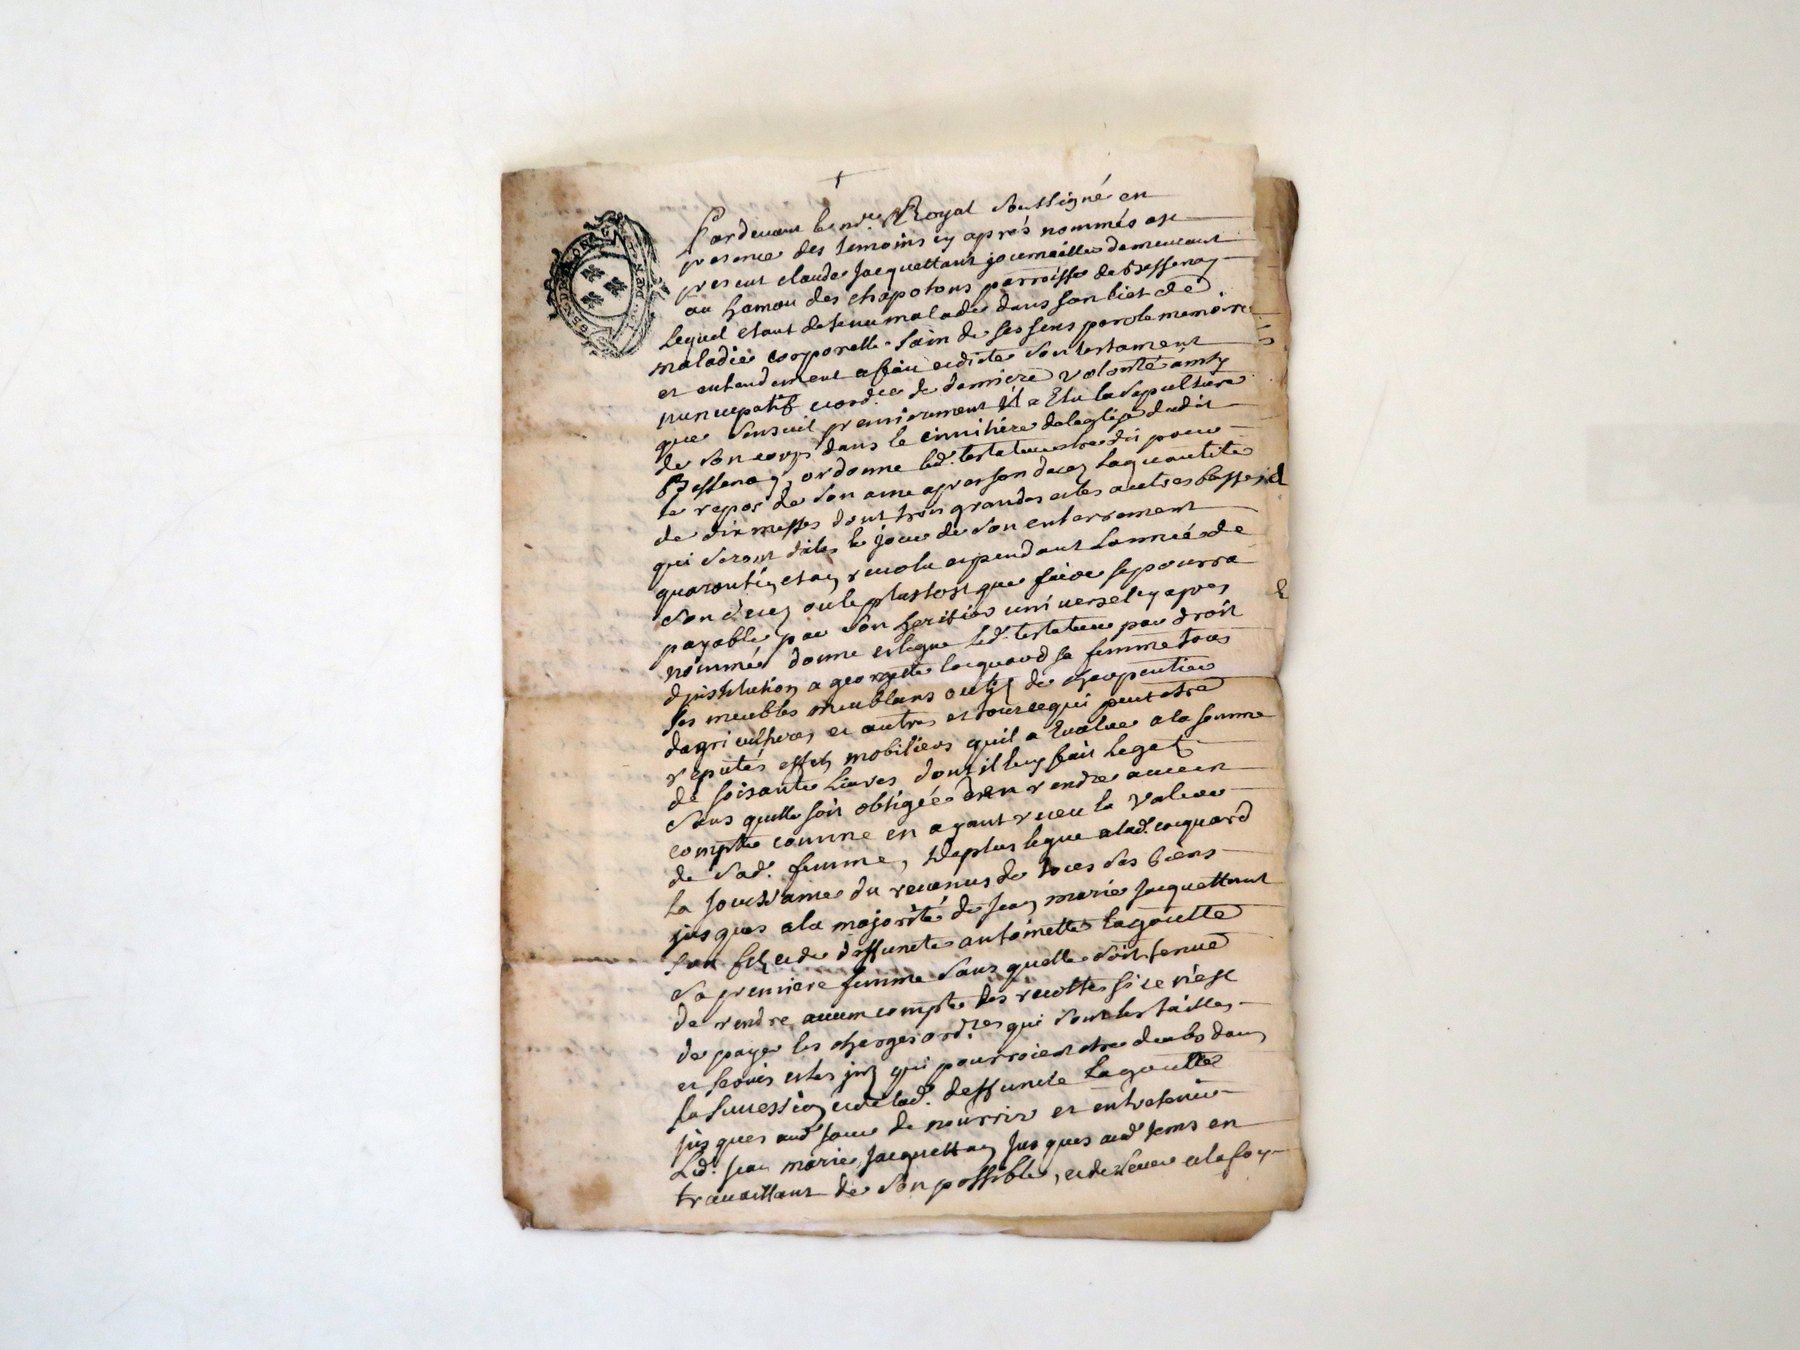 GEN. DE LYON
Pardevant le no.re Royal Soussigné en
presence des temoins cy après nommés est
present claude Jacquettant journallier demeurant
au hameau des chapotons parroisse de Bessenay
Lequel etant detenu malade dans son liet de
maladie corporelle Sain de ses sens parole memoire
et entendement a fait et dicté Son testament
nuncupatif et ord.re de derniere volonté ainsy
que Sensuit premierement Il a Elu la Sepulture
de Son corps dans le cimitiere de leglise dudit
Bessenay, ordonne led. testateur etre dit pour
le repos de Son ame apres son deces la quantité
de dix messes dont trois grandes et les autres basses
qui Seront dites le jour de Son enterrement
quarantin et an revolu et pendant L'année de
Son deces ou le plustost que faire se pourra
payable par Son heritier universel cy apres
nommé donne et legue led. testateur par droit
d'institution a georgette cocquard sa femme tous
ses meubles meublans outils de charpentier
dagriculture, et autres et tout ce qui peut etre
reputés effets mobiliers qu'il a Evalué a la somme
de soisante Livres dont il luy fait legat
Sans quelle soit obligée d'en rendre aucun
compte comme en ayant receu la valeur
de Sad. femme, De plus legue a lad. cocquard
La jouissance du revenus de tous Ses biens
jusques a la majorité de Jean marie Jacquettant
Son fils et de deffuncte antoinette Lagoutte
Sa premiere femme Sans quelle Soit tenue
de rendre aucun compte des recoltes si ce n'est
de payer les charges ord.res qui Sont les tailles
et servis et les qui pourroient etre deubs dans
sa succession et de lad. deffuncte Lagoutte
jusques aud. jour de nourrir et entretenir
Led. Jean marie Jacquettan jusques aud. tems en
travaillant de Son possible, et de Lever a la foy